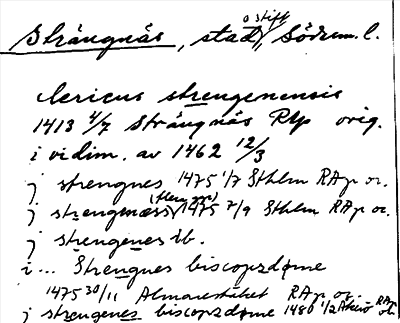 o stift
Strängnäs, stad, Söderm. l.
clericus strengenensis
1413 4/7 Strängnäs RAp orig.
i vidim. av 1462 12/3
j strengnes 1475 1/7 Sthlm RAp or.
j strengenæss 1475 7/9 Sthlm RAp or.
j strengenes ib.
i ... Strengnes biscopzdøme
1475 30/11 Almarestäket RAp or.
j strengenes biscopzdøme 1480 1/2 RAp or.